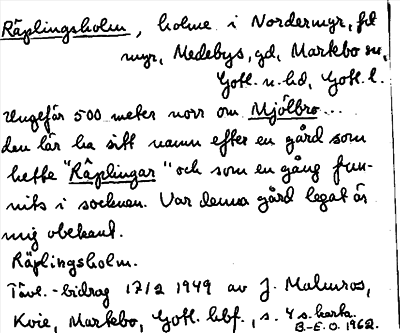 Räplingsholm, holme i Nordermyr, fd
myr, Medebys, gd, Markbo sn,
Gotl. n. hd, Gotl. l.
Ungefär 500 meter norr om Mjölbro...
den lär ha sitt namn efter en gård som
hette "Räplingar" och som en gång fun-
nits i socknen. Var denna gård legat är
mig obekant.
Räplingsholm.
Tävl.-bidrag 17/2 1949 av J. Malmros,
Kvie, Markbo, Gotl. hbf., s. 4 s. karta.
B.-E.O. 1962.